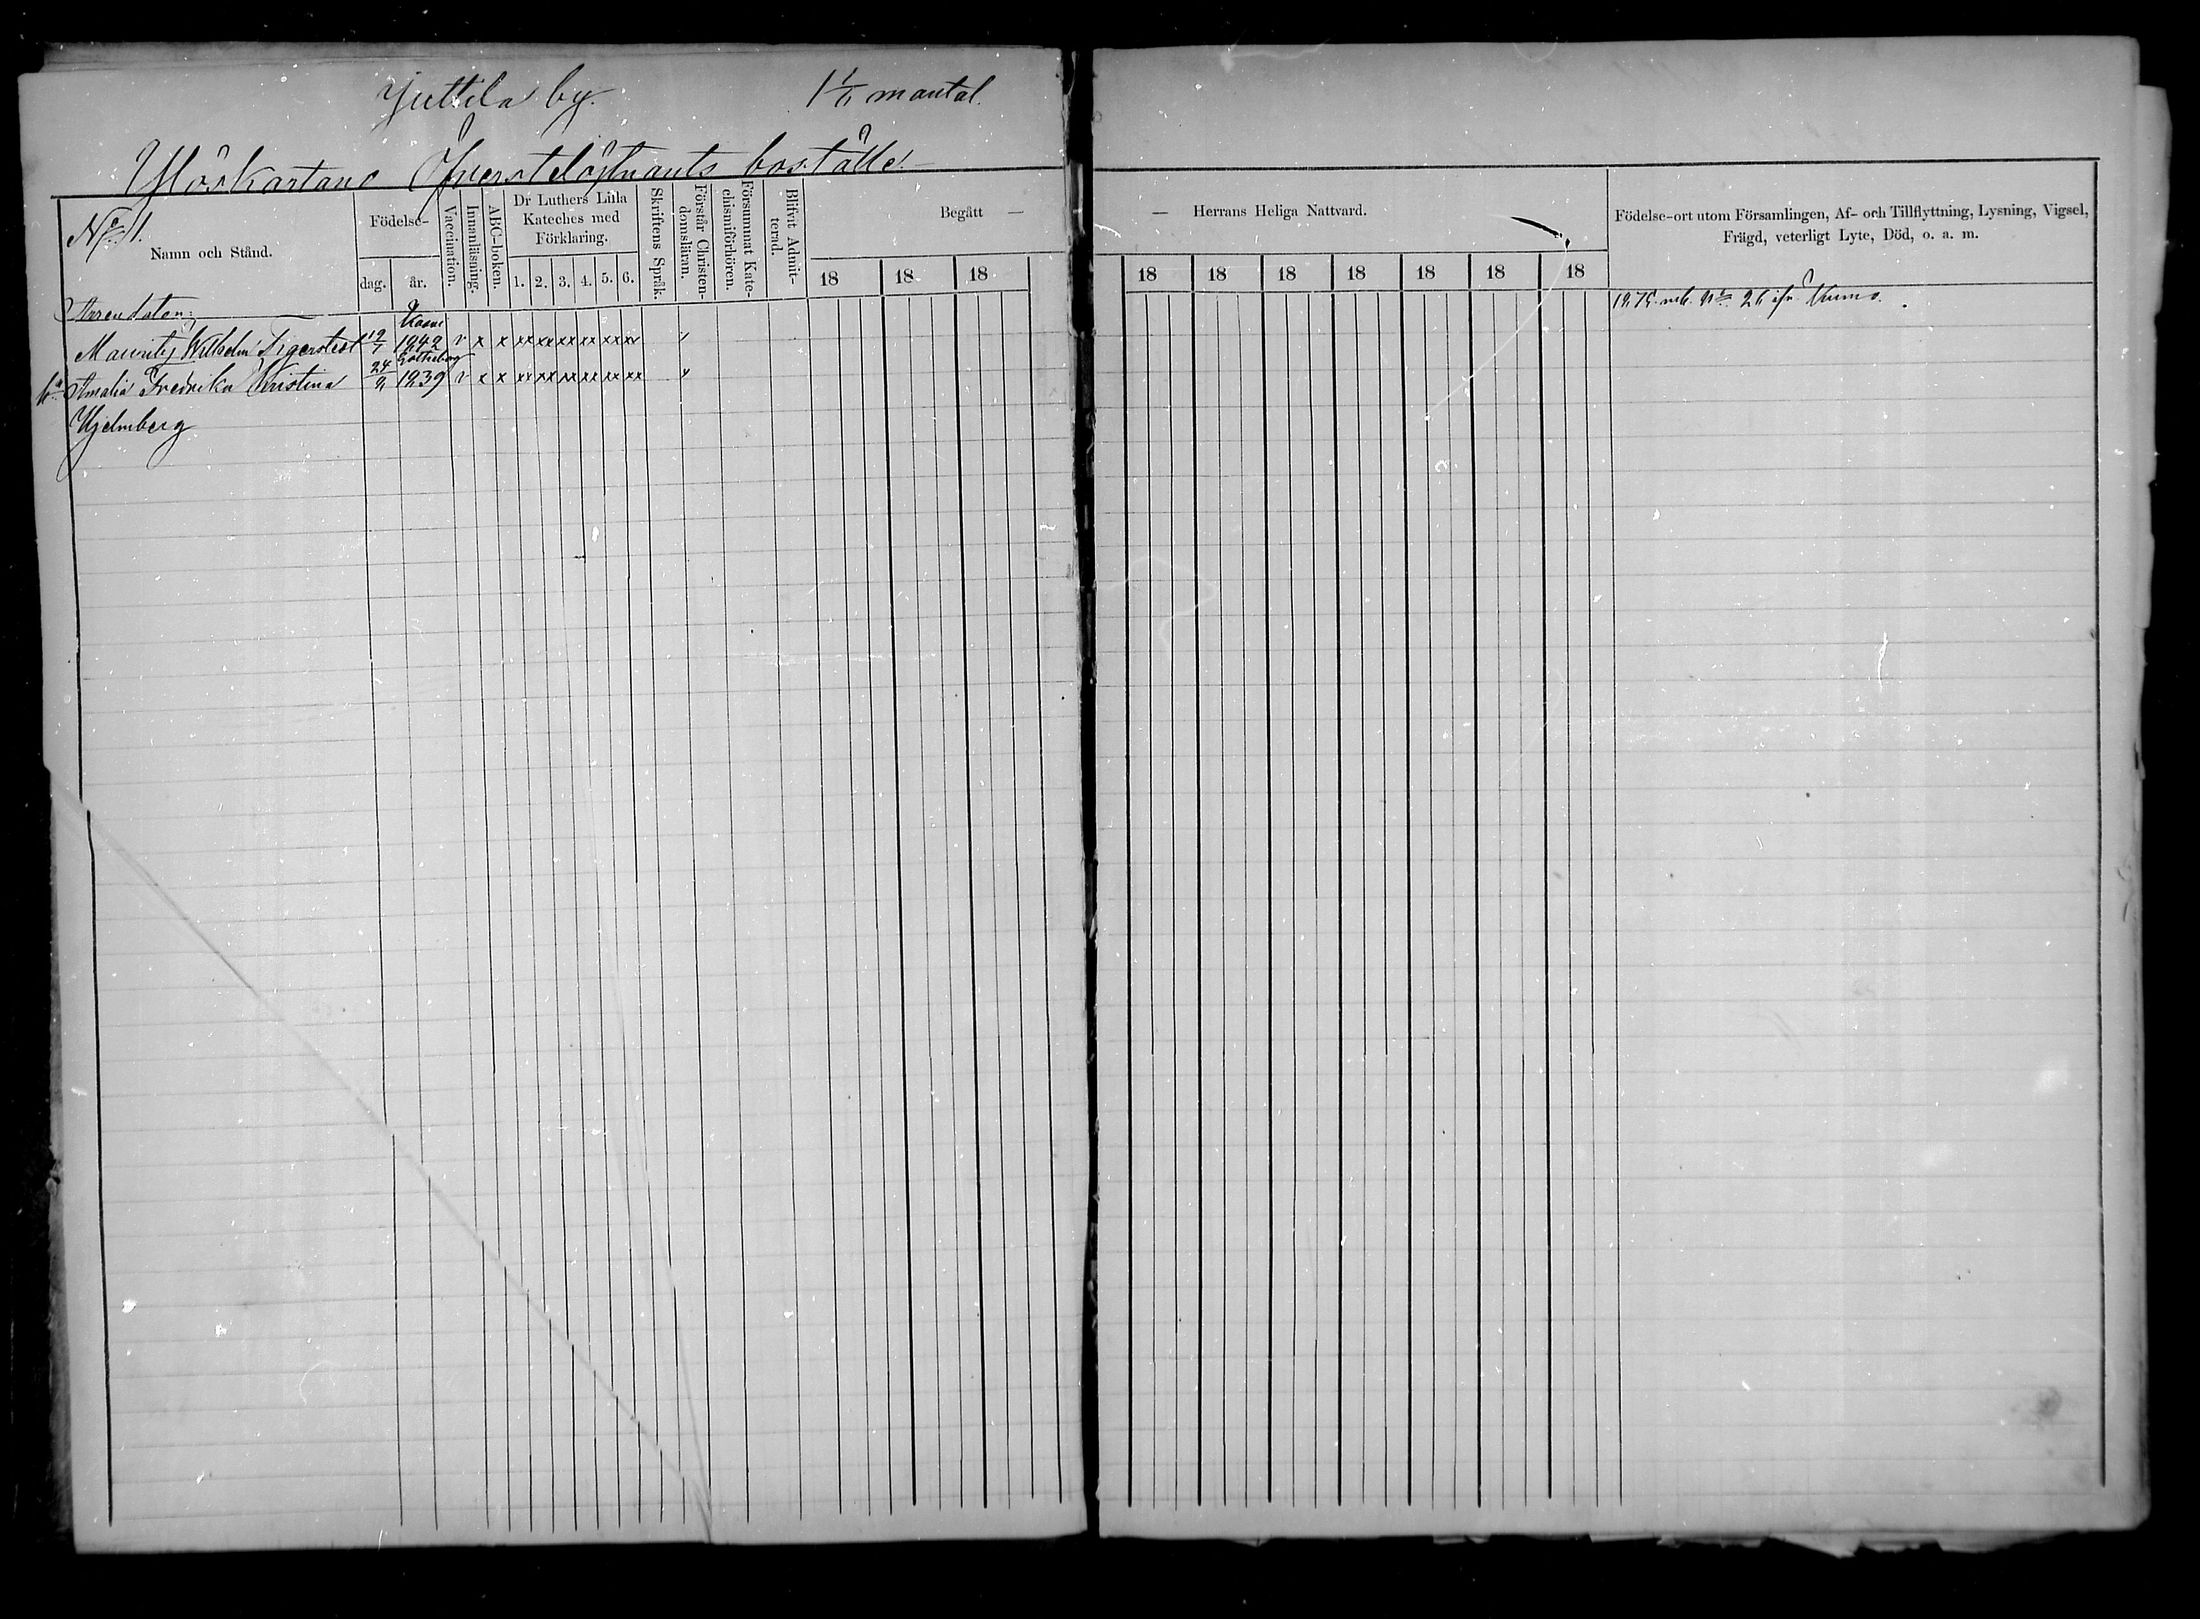 Juttila by. 1 1/6 mantal.
Ylöskartano Öfverstelöjtnants boställe.
No 1.
Namn och Stånd.
Födelse-
dag. år.
Vaccination.
Innanläsning.
ABC-boken.
Dr Luthers Lilla
Kateches med
Förklaring.
1. 2. 3. 4. 5. 6.
Skriftens Språk.
Förstår Christen-
domsläran.
Försummat Kate-
chismiförhören.
Blifvit Admit-
terad.
Begått —
18 18 18
— Herrans Heliga Nattvard.
18 18 18 18 18 18 18
Födelse-ort utom Församlingen, Af- och Tillflyttning, Lysning, Vigsel,
Frägd, veterligt Lyte, Död, o. a. m.
Arrendatorn: 
Mauritz Wilhelm Tigerstedt 1842 v x x xx xx xx xx xx xx
Götheborg
Amalia Fredrika Kristina 24/9 1839 v x x xx xx xx xx xx xx
Hjelmberg